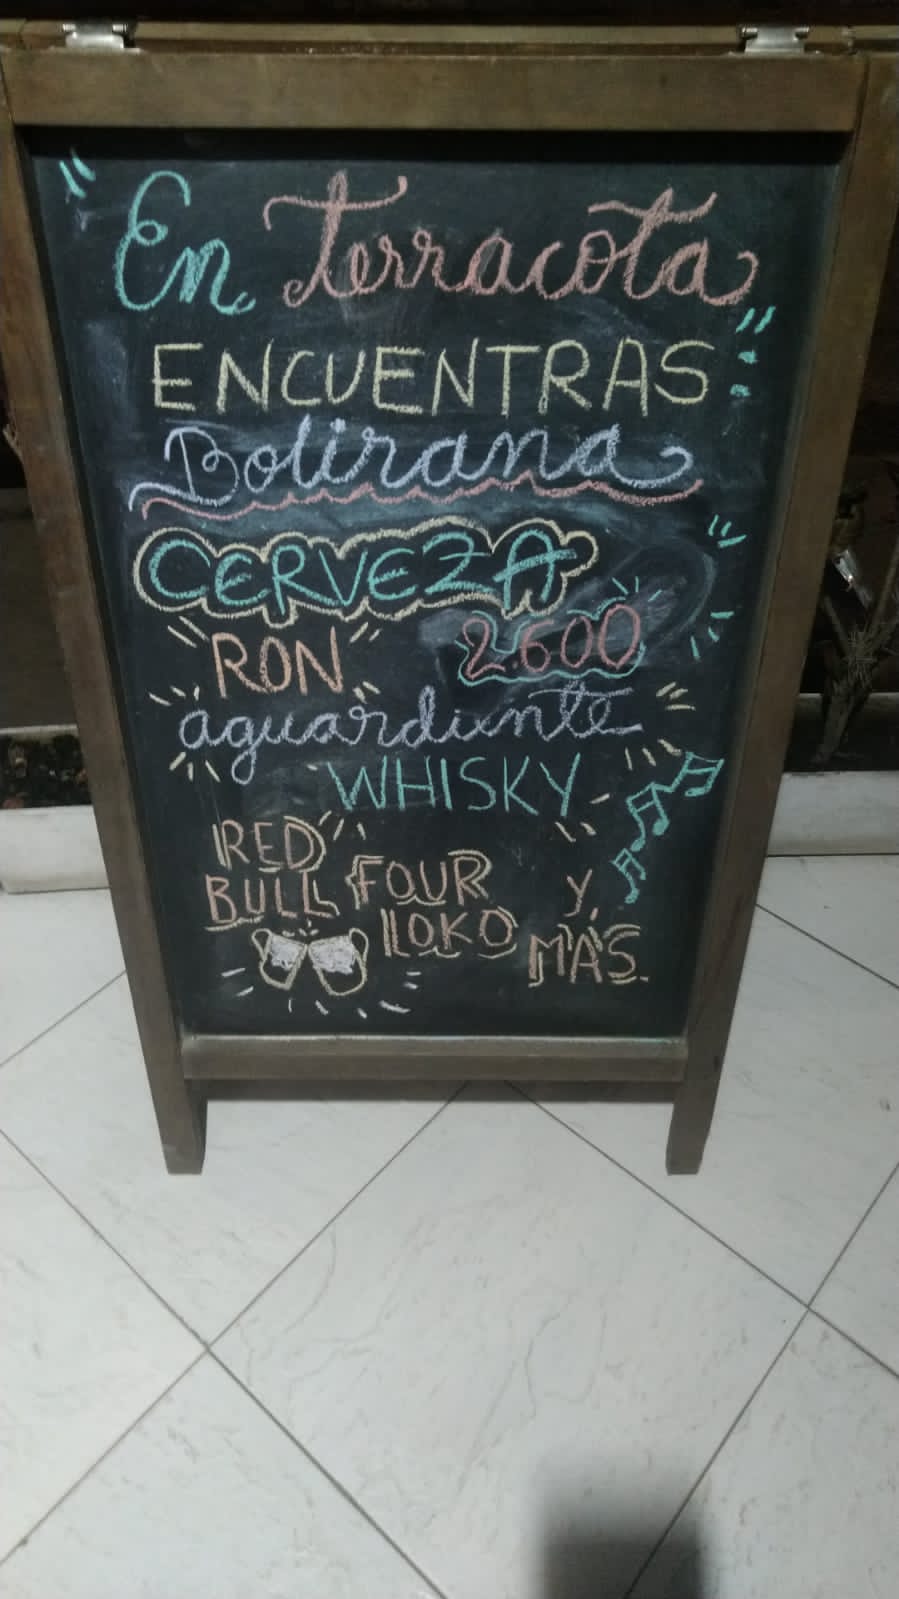 En Terracota
ENCUENTRAS
Bolirana
CERVEZA
2.600
RON
aguardiente
WHISKY
RED
BULL
FOUR
LOKO
Y,
MÁS.